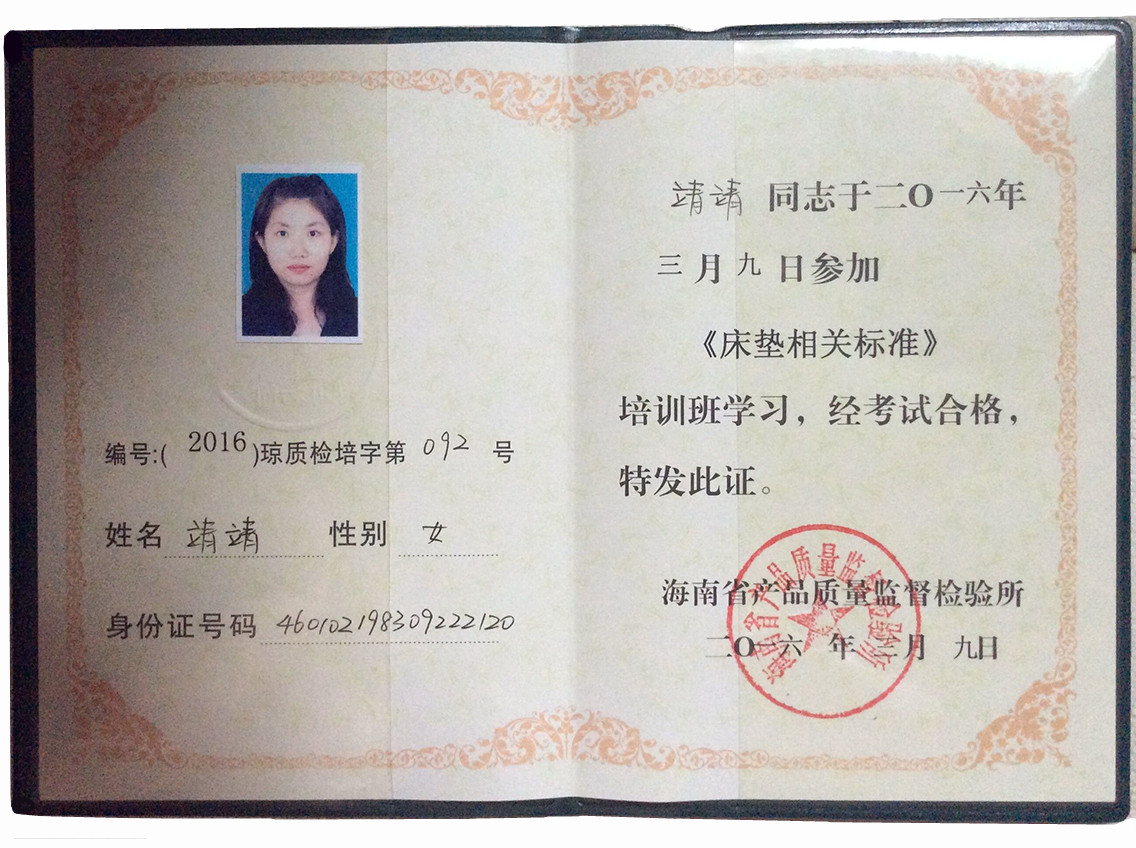 编号:( 2016 )琼质检培字第 092 号
姓名 靖靖 性别 女
身份证号码 460102198309222120
靖靖 同志于二O一六年
三月九日参加
《床垫相关标准》
培训班学习，经考试合格，
特发此证。
海南省产品质量监督检验所
二O一六年三月九日
海南省产品质量监督检验所